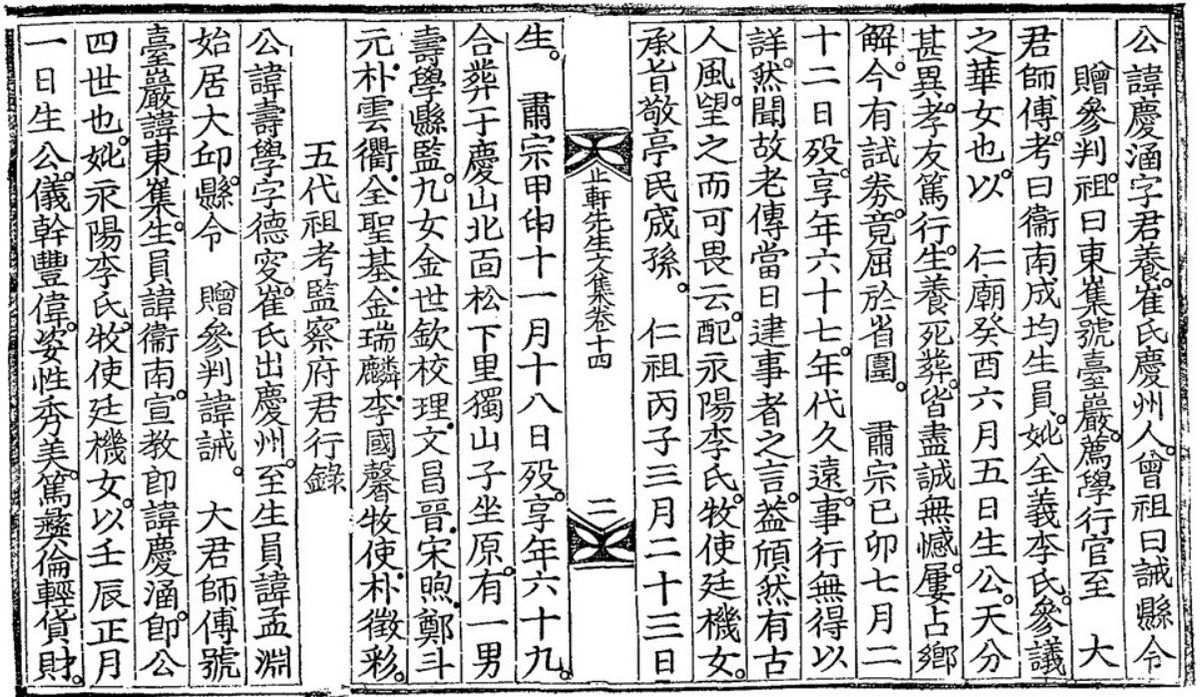 公諱慶涵字君養崔氏慶州人曾祖曰諴縣令
贈參判祖曰東㠍號臺巖薦學行官至　大
君師傅考曰衞南成均生員妣全義李氏參議
之華女也以　仁廟癸酉六月五日生公天分
甚異孝友篤行生養死葬皆盡誠無憾屢占鄉
解今有試券竟屈於省圍　肅宗己卯七月二
十二日歿享年六十七年代久遠事行無得以
詳然聞故老傳當日逮事者之言葢頎然有古
人風望之而可畏云配永陽李氏牧使廷機女
承旨敬亭民宬孫　仁祖丙子三月二十三日
止軒先生文集卷十四
二
生　肅宗甲申十一月十八日歿享年六十九
合葬于慶山北面松下里獨山子坐原有一男
壽學縣監九女金世欽校理文昌晉宋煦鄭斗
元朴雲衢全聖基金瑞麟李國馨牧使朴徵彩
五代祖考監察府君行錄
公諱壽學字德叜崔氏出慶州至生員諱孟淵
始居大邱縣令　贈參判諱諴　大君師傅號
臺巖諱東㠍生員諱衞南宣教郎諱慶涵卽公
四世也妣永陽李氏牧使廷機女以壬辰正月
一日生公儀幹豐偉姿性秀美篤彝倫輕貨財